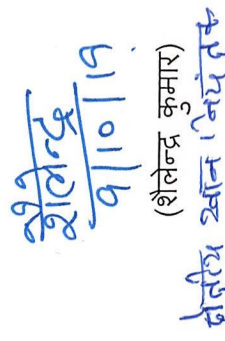 शैलेन्द्र
9/10/19
(शैलेन्द्र कुमार)
क्षेत्रीय खान नियंत्रक